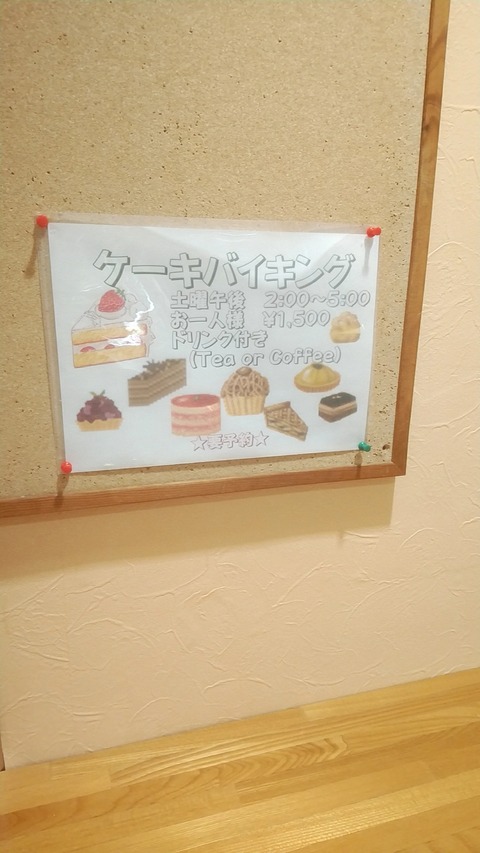 ケーキバイキング
土曜午後 2:00〜5:00
お一人様 ¥1,500
ドリンク付き
(Tea or Coffee)
☆要予約☆